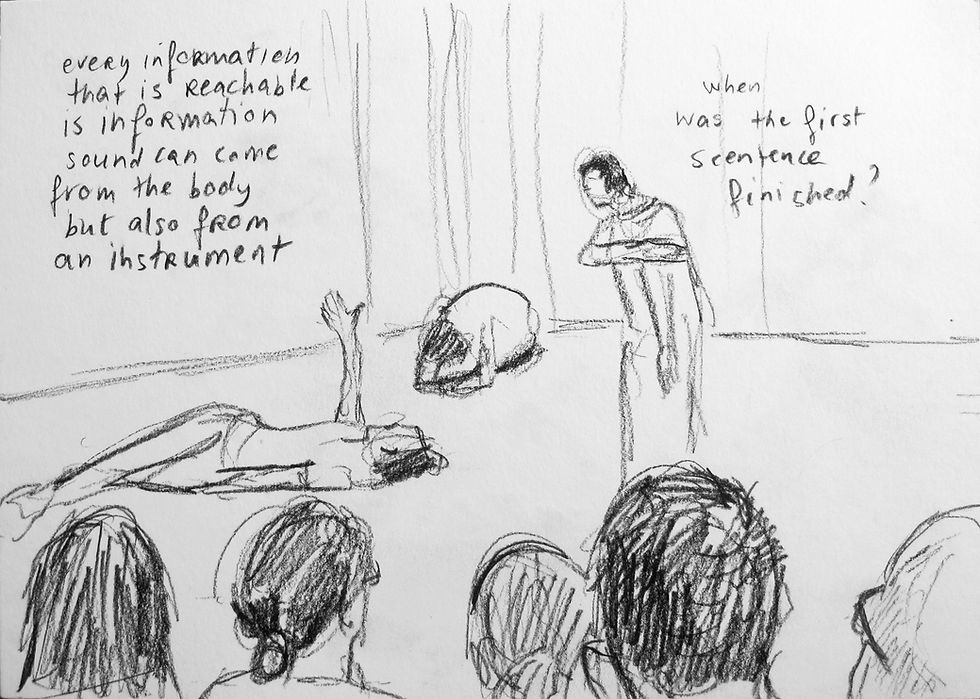 every information
that is reachable
is information
sound can come
from the body
but also from
an instrument
when
was the first
scentence
finished?